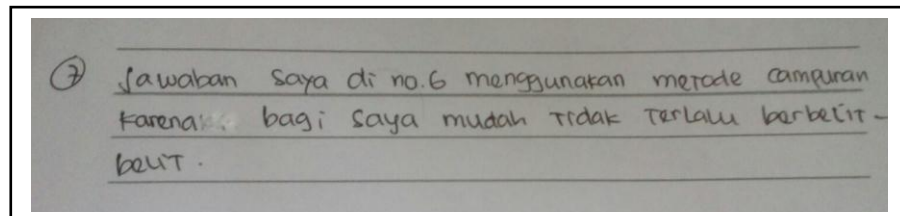 ⑦ Jawaban saya di no.6 menggunakan metode campuran
karena bagi saya mudah tidak terlalu berbelit-
belit.